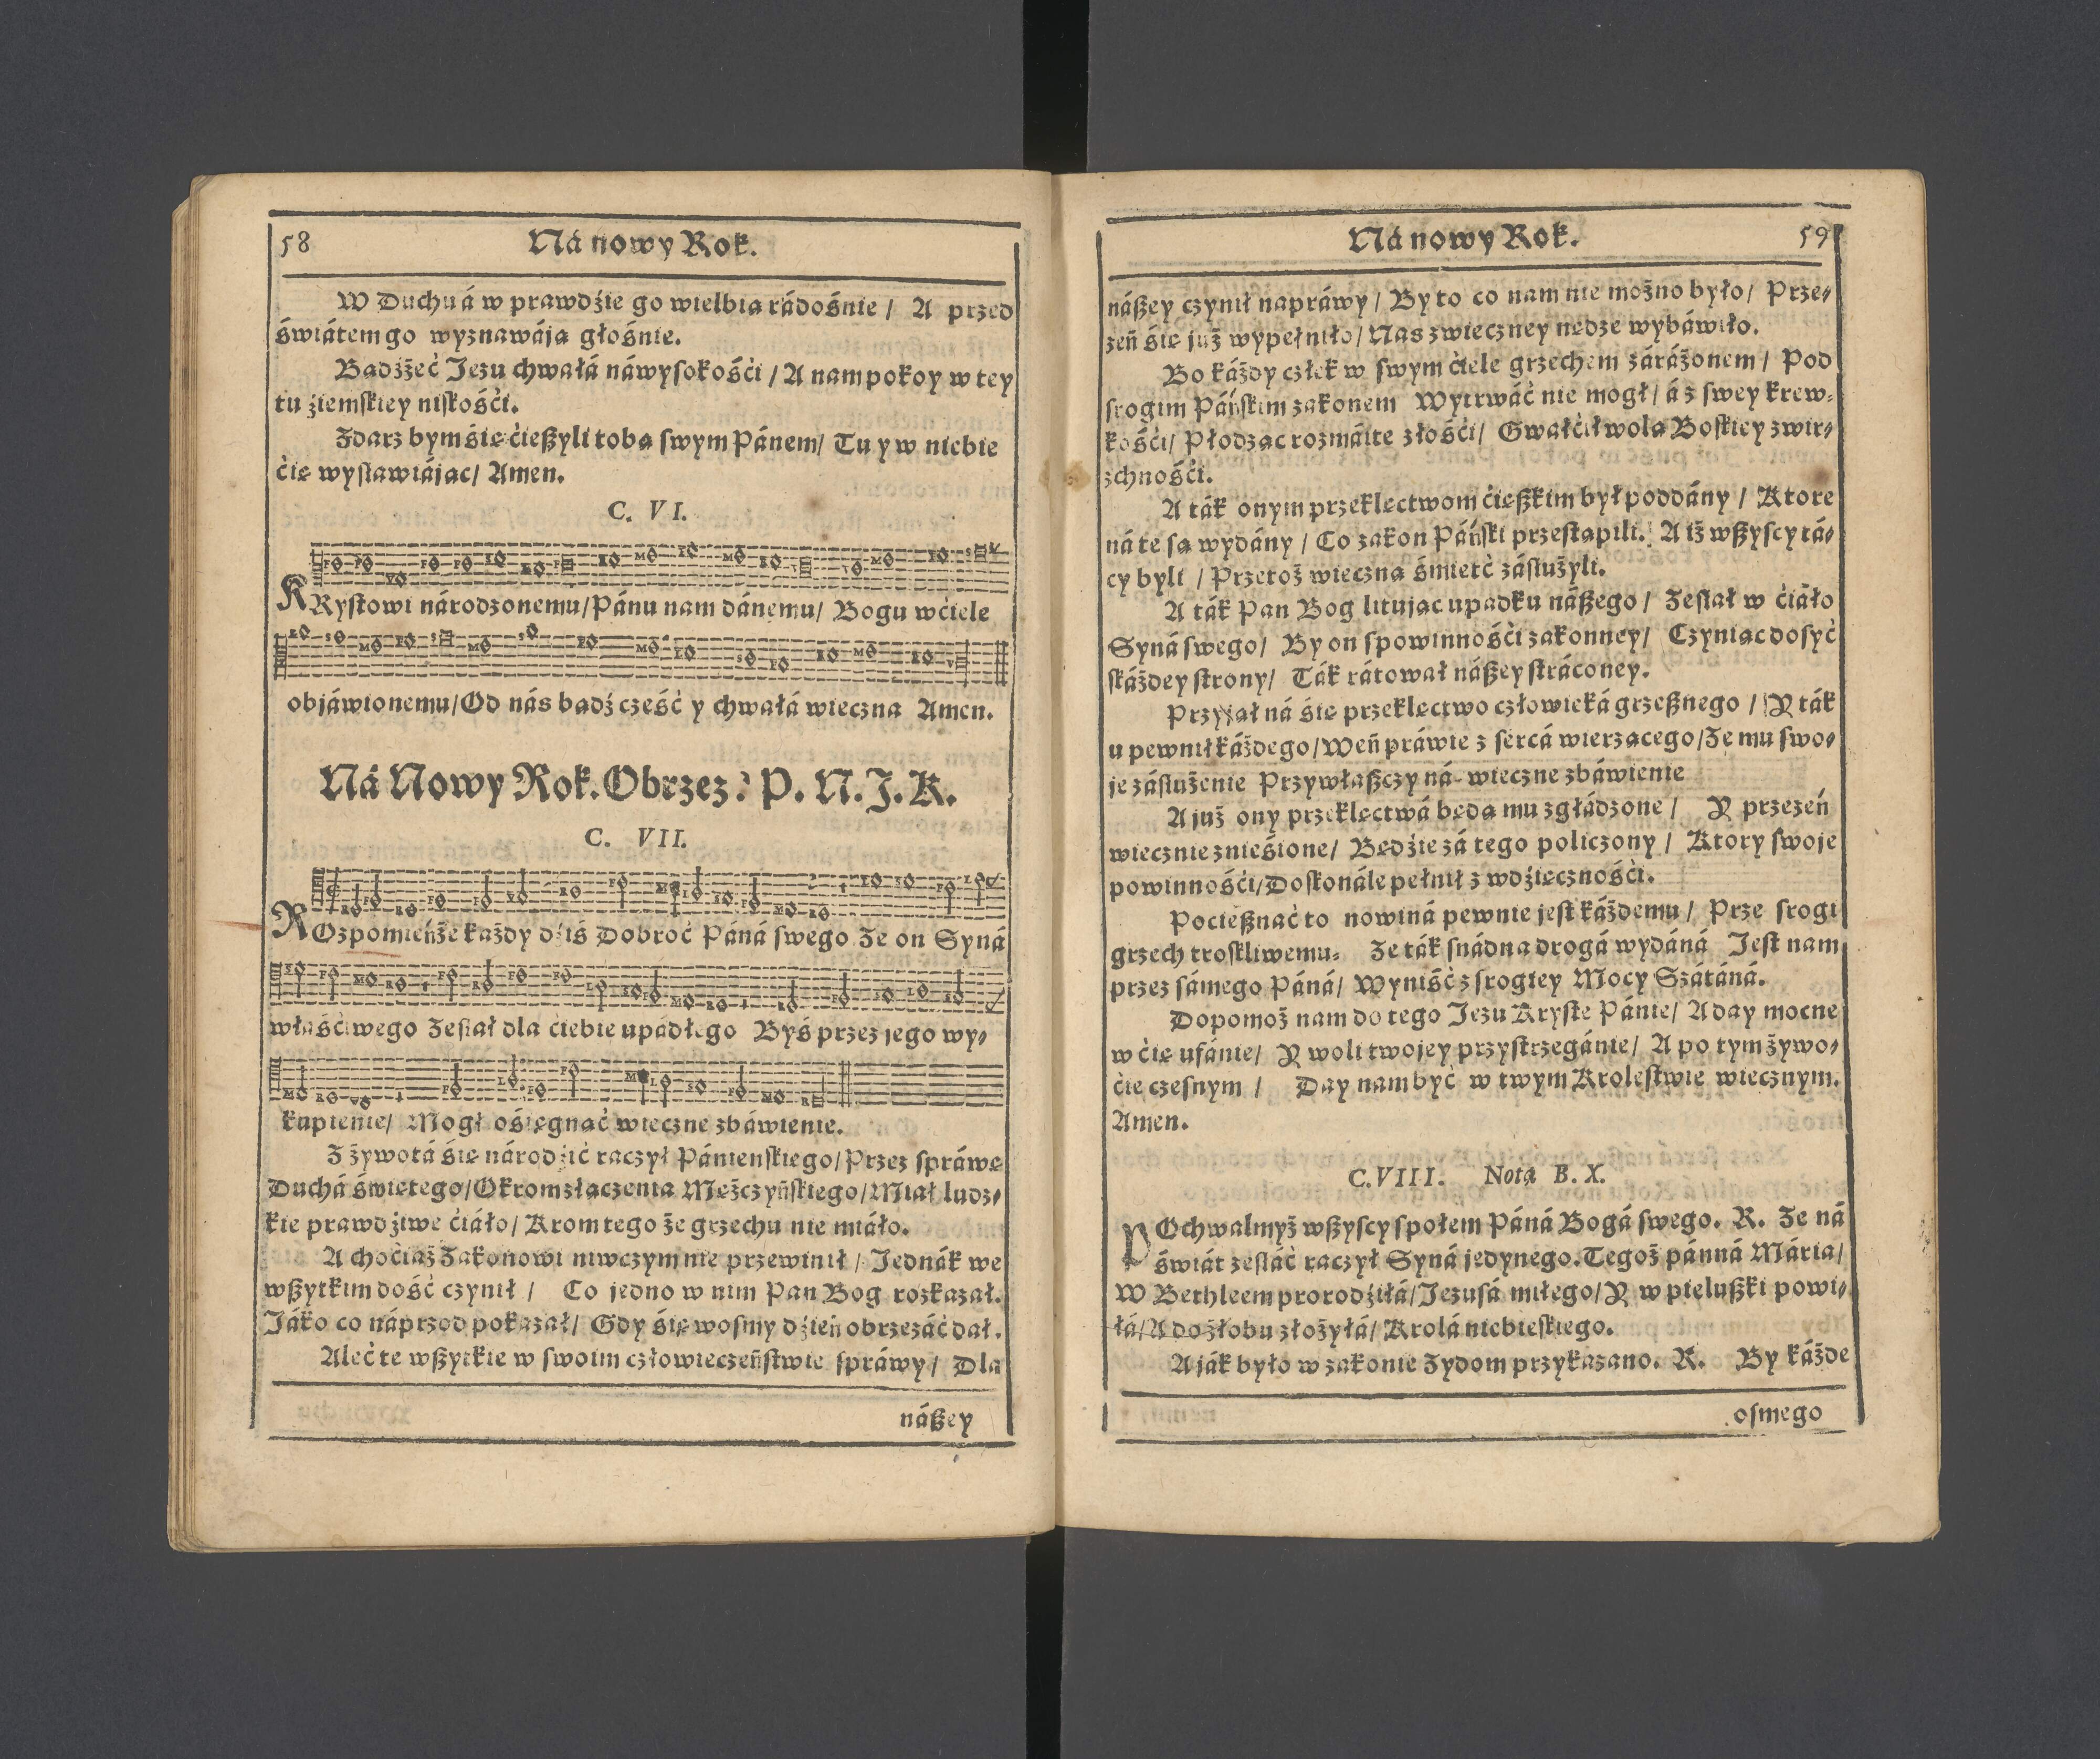 58 Ná nowy Rok.
W Duchu á w prawdźie go wielbia rádośnie / A przed
świátem go wyznawája głośnie.
Badźżeć Jezu chwałá náwysokośći / A nam pokoy w tey
tu źiemskiey niskośći.
Zdarz bym śię ćießyli toba swym Pánem / Tu y w niebie
ćię wysławiájac / Amen.
C. VI.
KRystowi národzonemu / Pánu nam dánemu / Bogu wćiele
objáwionemu / Od nás badź cześć y chwałá wieczna Amen.
Ná Nowy Rok. Obrzez: P. N. J. K.
C. VII.
ROzpomieńże każdy dźiś Dobroć Páná swego Że on Syná
właśćiwego Zesłał dla ćiebie upádłego Byś przez jego wy-
kupienie / Mogł ośięgnać wieczne zbáwienie.
Z żywotá śię národźić raczył Pánienskiego / Przez spráwę
Duchá świętego / Okrom złaczenia Mężczyńskiego / Miał ludz-
kie prawdźiwe ćiáło / Krom tego że grzechu nie miáło.
A choćiaż Zakonowi niwczym nie przewinił / Jednák we
wßytkim dość czynił / Co jedno w nim Pan Bog rozkazał.
Jáko co náprzod pokazał / Gdy śię wosmy dźień obrzezáć dał.
Aleć te wßytkie w swoim człowieczeństwie spráwy / Dla
náßey
Ná nowy Rok. 59
náßey czynił napráwy / By to co nam nie możno było / Prze-
zeń śię już wypełniło / Nas zwieczney nędze wybáwiło.
Bo káżdy człek w swym ćiele grzechem zárážonem / Pod
srogim Páńskim zakonem Wytrwáć nie mogł / á z swey krew-
kośći / Płodzac rozmáite złośći / Gwałćił wola Boskiey zwir-
zchnośći.
A ták onym przeklęctwom ćięßkim był poddány / Ktore
ná te sa wydány / Co zakon Páński przestapili. A iż wßyscy tá-
cy byli / Przetoż wieczna śmierć zásłużyli.
A ták Pan Bog litujac upadku náßego / Zesłał w ćiáło
Syná swego / By on spowinnośći zakonney / Czyniac dosyć
skáżdey strony / Ták rátował náßey stráconey.
Przyjał ná śię przeklęctwo człowieká grzeßnego / Y ták
upewnił káżdego / Weń práwie z sercá wierzacego / Że mu swo-
je zásłużenie Przywłaßczy ná wieczne zbáwienie
A już ony przeklęctwá będa mu zgłádzone / Y przezeń
wiecznie znieśione / Będźie zá tego policzony / Ktory swoje
powinnośći / Doskonále pełnił z wdźięcznośći.
Pocießnać to nowiná pewnie jest káżdemu / Prze srogi
grzech troskliwemu. Że ták snádna drogá wydáná Jest nam
przez sámego Páná / Wyniść z srogiey Mocy Szátáná.
Dopomoż nam do tego Jezu Kryste Pánie / A day mocne
w ćię ufánie / Y woli twojey przystrzegánie / A po tym żywo-
ćie czesnym / Day nam być w twym Krolestwie wiecznym.
Amen.
C. VIII. Nota B. X.
POchwalmyż wßyscy społem Páná Bogá swego. R. Że ná
świát zesłáć raczył Syná jedynego. Tegoż pánná Mária /
W Bethleem prorodźiłá / Jezusá miłego / Y w pielußki powi-
łá / A do żłobu złożyłá / Krolá niebieskiego.
A ják było w zakonie Żydom przykazano. R. By káżde
osmego